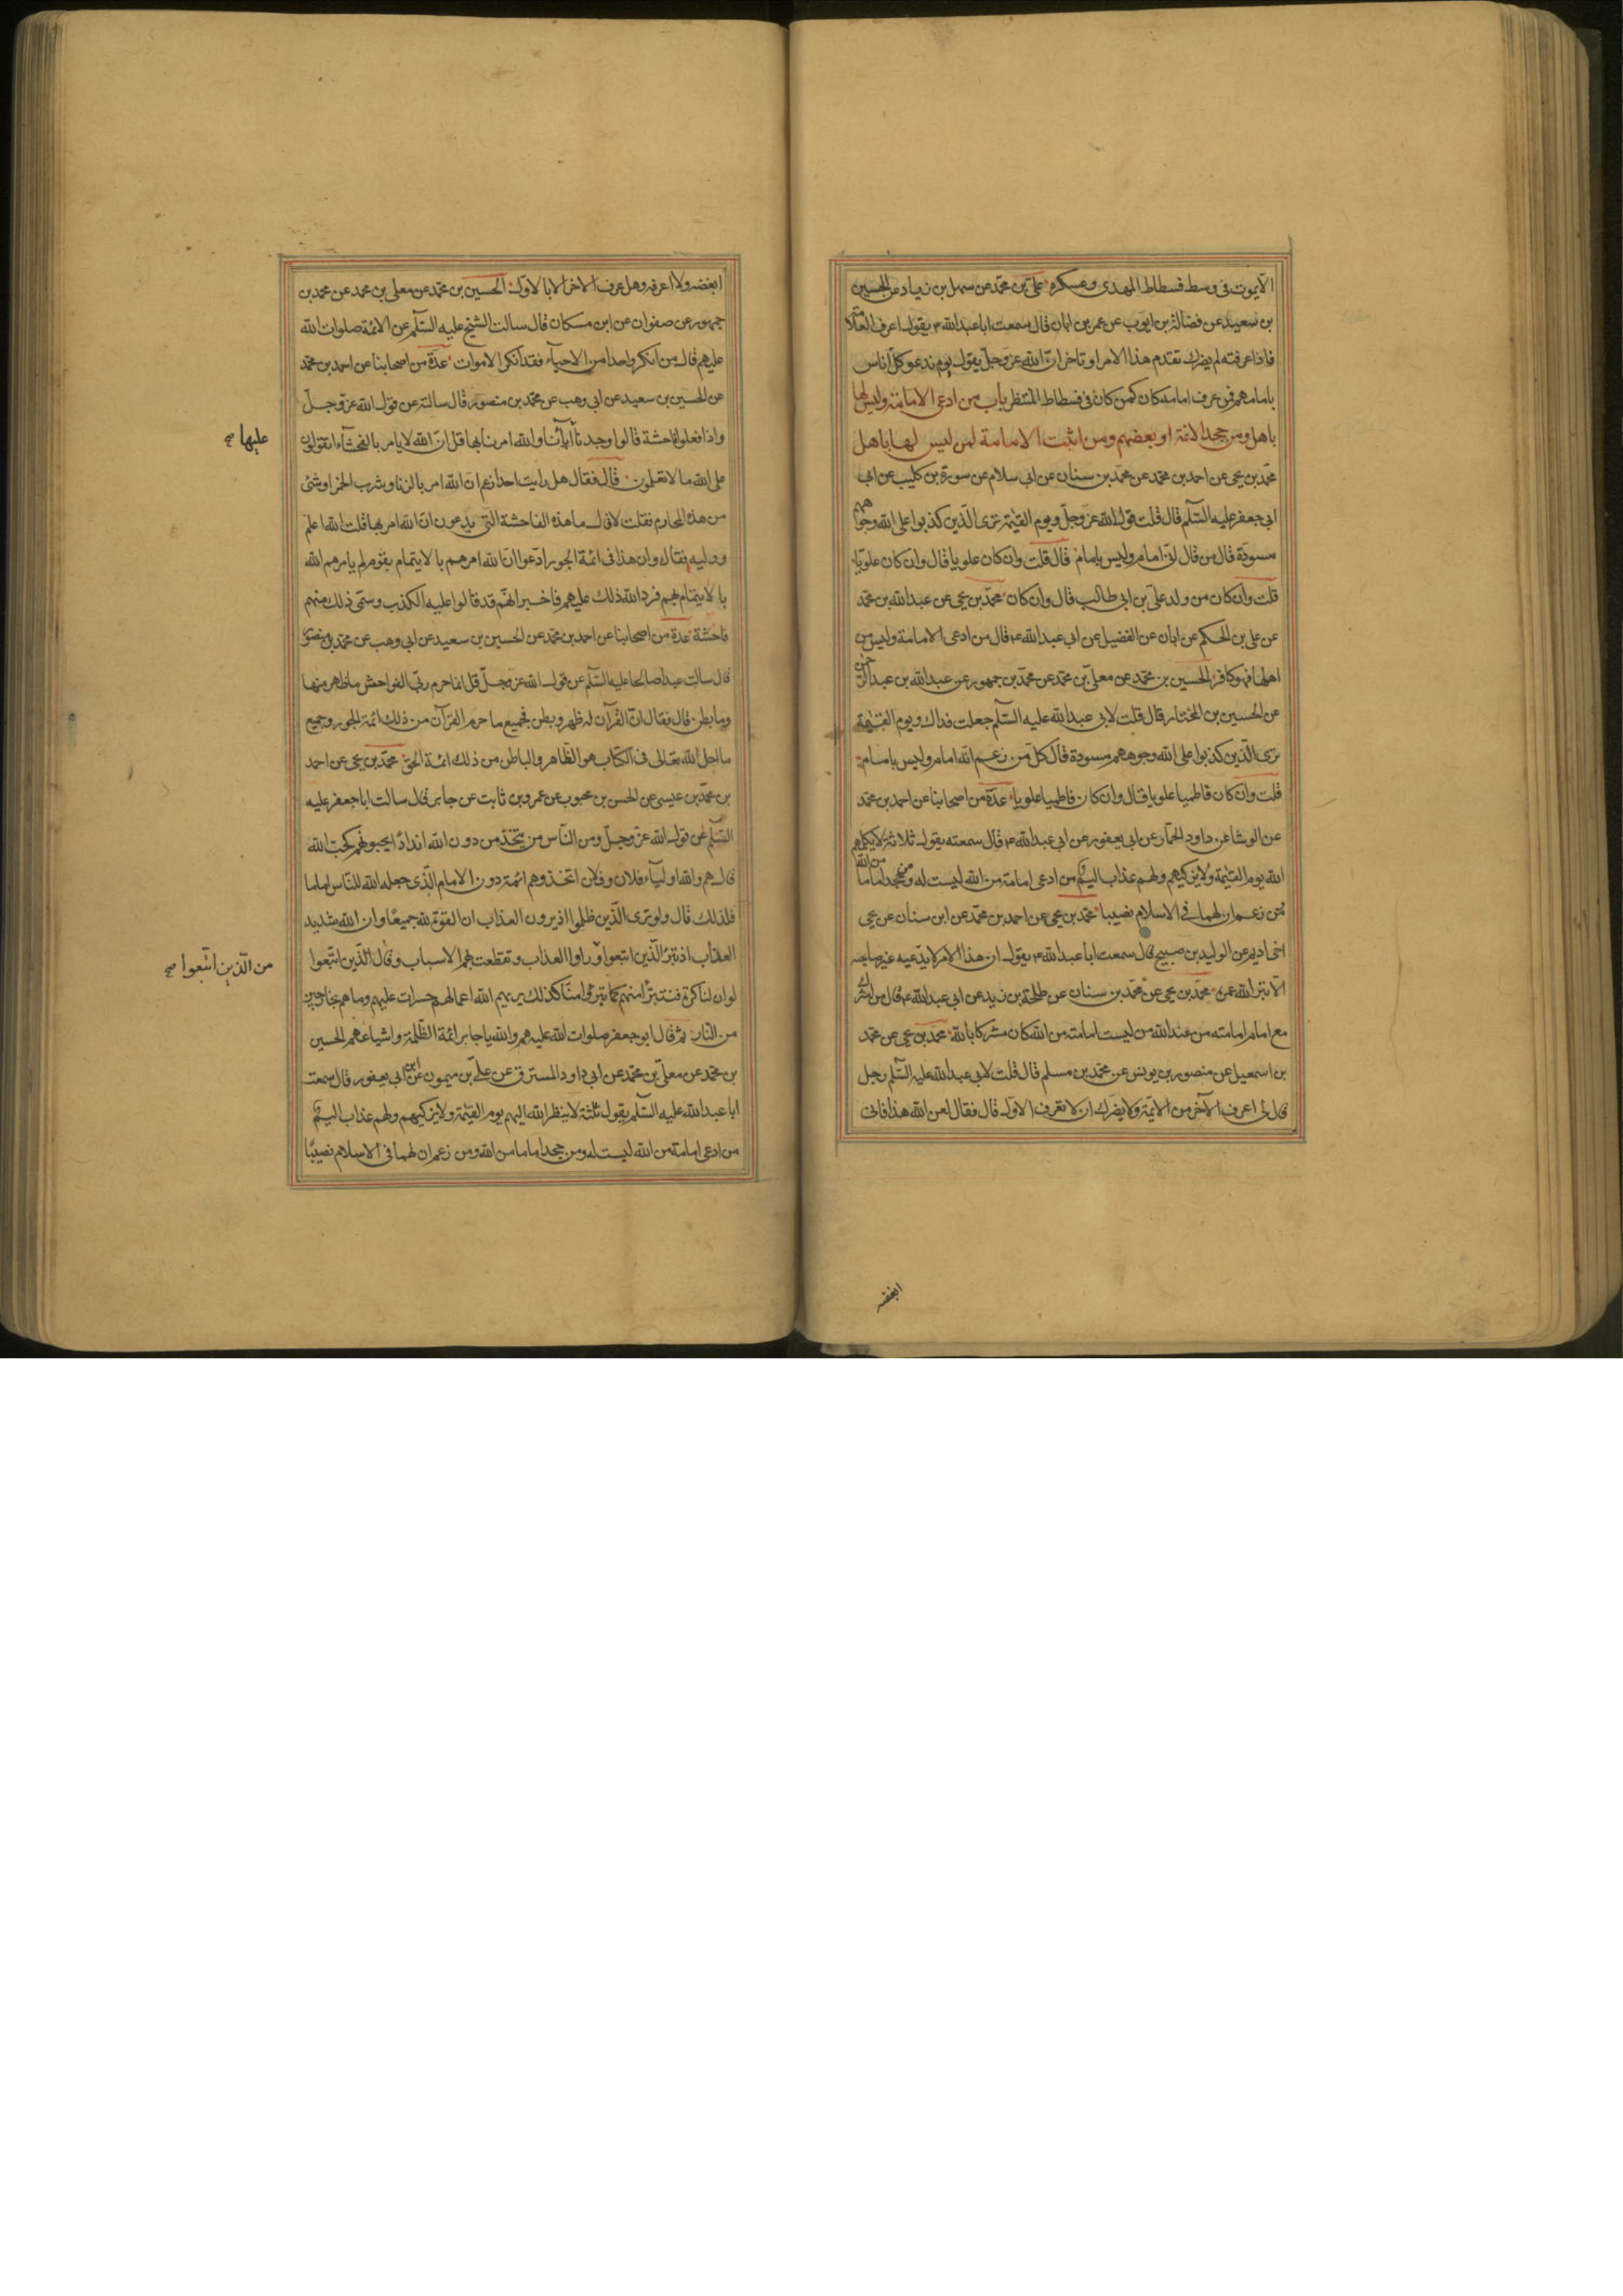 الا يموت فى وسط فسطاط المهدى وعسكره علىّ بن محمّد عن سهل بن زياد عن الحسين
بن سعيد عن فضالة بن ايوب عن عمر بن ابان قال سمعت ابا عبد الله ع يقول اعرف العلامة
فاذا عرفته لم يضرك تقدم هذا الامر او تاخر انّ الله عز وجلّ يقول يوم ندعو كلّ اناس
بامامهم فمن عرف امامه كان كمن كان فى فسطاط المنتظر باب من ادعى الامامة وليس لها
باهل ومن جحد الائمة او بعضهم ومن اثبت الامامة لمن ليس لها باهل
محمّد بن يحيى عن احمد بن محمّد عن محمّد بن سنان عن ابى سلام عن سورة بن كليب عن ابى
ابى جعفر عليه السّلم قال قلت قول الله عز وجلّ ويوم القيٰمة ترى الّذين كذبوا على الله وجوههم
مسودّة قال من قال انّى امام وليس بامام قال قلت وان كان علويا قال وان كان علويّا
قلت وان كان من ولد علىّ بن ابى طالب قال وان كان محمّد بن يحيى عن عبد الله بن محمّد
عن على بن الحكم عن ابان عن الفضيل عن ابى عبد الله ع قال من ادعى الامامة وليس من
اهلها فهو كافر الحسين بن محمّد عن معلىّ بن محمّد عن محمّد بن جمهور عن عبد الله بن عبد الرحمن
عن الحسين بن المختار قال قلت لابى عبد الله عليه السّلم جعلت فداك ويوم القيٰمة
ترى الّذين كذبوا على الله وجوههم مسودة قال كلّ من زعم انّه امام وليس بامام
قلت وان كان فاطميا علويا قال وان كان فاطميا علويا عدّة من اصحابنا عن احمد بن محمّد
عن الوشا عن داود الحمّار عن ابى يعفور عن ابى عبد الله ع قال سمعته يقول ثلاثة لا يكلمهم
الله يوم القيٰمة ولا يزكيهم ولهم عذاب اليم من ادعى امامة من الله ليست له ومن جحد اماما من الله
ومن زعم ان لهما فى الاسلام نصيبا محمّد بن يحيى عن احمد بن محمّد عن ابن سنان عن يحيى
اخى اديم عن الوليد بن صبيح قال سمعت ابا عبد الله ع يقول ان هذا الامر لا يدّعيه غير صاحبه
الا تبر الله عمره محمّد بن يحيى عن محمّد بن سنان عن طلحة بن زيد عن ابى عبد الله ع قال من اشرك
مع امام امامته من عند الله من ليست امامته من الله كان مشركا بالله محمّد بن يحيى عن محمّد
بن اسمعيل عن منصور بن يونس عن محمّد بن مسلم قال قلت لابى عبد الله عليه السّلم رجل
قال لى اعرف الآخر من الائمّة ولا يضرّك ان لا تعرف الاوّل قال فقال لعن الله هذا فانى
ابغضه
ابغضه ولا اعرفه وهل عرف الاخر الا بالاوّل الحسين بن محمّد عن معلى بن محمد عن محمد بن
جمهور عن صفوان عن ابن مسكان قال سالت الشيخ عليه السّلم عن الائمة صلوات الله
عليهم قال من انكر واحدا من الاحياء فقد انكر الاموات عدّة من اصحابنا عن احمد بن محمّد
عن الحسين بن سعيد عن ابى وهب عن محمّد بن منصور قال سالته عن قول الله عزّ وجلّ
واذا فعلوا فاحشة قالوا وجدنا آبائنا والله امرنا بها قل انّ الله لا يامر بالفحشاء اتقولون
عليها صح
على الله ما لا تعلمون قال فقال هل رايت احدا زعم انّ الله امر بالزنا وشرب الخمر او شئ
من هذه المحارم فقلت لا قال ما هذه الفاحشة التى يدعون انّ الله امر بها قلت الله اعلم
ووليه فقال وان هذا فى ائمة الجور ادّعوا انّ الله امرهم بالايتمام بقوم لم يامرهم الله
بالايتمام بهم فرد الله ذلك عليهم فاخبر انّهم قد قالوا عليه الكذب وسمّى ذلك منهم
فاحشة عدة من اصحابنا عن احمد بن محمّد عن الحسين بن سعيد عن ابى وهب عن محمّد بن منصور
قال سالت عبدا صالحا عليه السّلم عن قول الله عز وجلّ قل انما حرم ربّى الفواحش ما ظهر منها
وما بطن قال فقال انّ القرآن له ظهر وبطن فجميع ما حرم القرآن من ذلك ائمة الجور وجميع
ما احل الله تعالى فى الكتاب هو الظاهر والباطن من ذلك ائمة الحقّ محمّد بن يحيى عن احمد
بن محمّد بن عيسى عن الحسن بن محبوب عن عمرو بن ثابت عن جابر قال سالت ابا جعفر عليه
السّلم عن قول الله عزّ وجلّ ومن النّاس من يتّخذ من دون الله اندادًا يحبونهم كحب الله
قال هم والله اولياء فلان وفلان اتخذوهم ائمة دون الامام الّذى جعله الله للنّاس اماما
فلذلك قال ولو ترى الّذين ظلموا اذ يرون العذاب ان القوة لله جميعًا وان الله شديد
العذاب اذ تبرّأ الّذين اتبعوا وراوا العذاب وتقطعت بهم الاسباب وقال الّذين اتبعوا
من الّذين اتّبعوا صح
لو ان لنا كرة فنتبرّأ منهم كما تبرّؤا منّا كذلك يريهم الله اعمالهم حسرات عليهم وما هم بخارجين
من النار ثم قال ابو جعفر صلوات الله عليه هم والله يا جابر ائمة الظّلمة واشياعهم الحسين
بن محمّد عن معلىّ بن محمّد عن ابى داود المسترق عن علىّ بن ميمون عن ابن ابى يعفور قال سمعت
ابا عبد الله عليه السّلم يقول ثلثة لا ينظر الله اليهم يوم القيٰمة ولا يزكيهم ولهم عذاب اليم
من ادعى امامة من الله ليست له ومن جحد اماما من الله ومن زعم ان لهما فى الاسلام نصيبًا